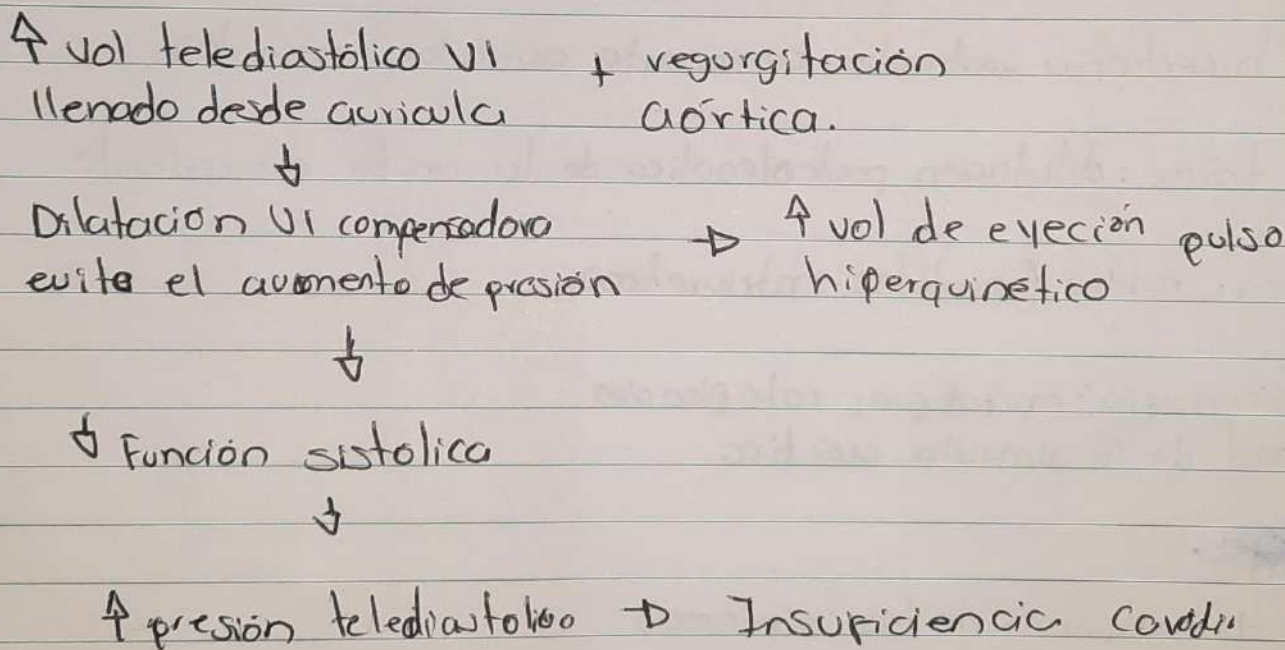 ↑ vol telediastólico VI + regurgitación
llenado desde auricula aórtica.
↓
Dilatacion VI compensadora → ↑ vol de eyeción pulso
evita el aumento de presión hiperquinético
↓
↓ Función sistolica
↓
↑ presión telediastolico → Insuficiencia